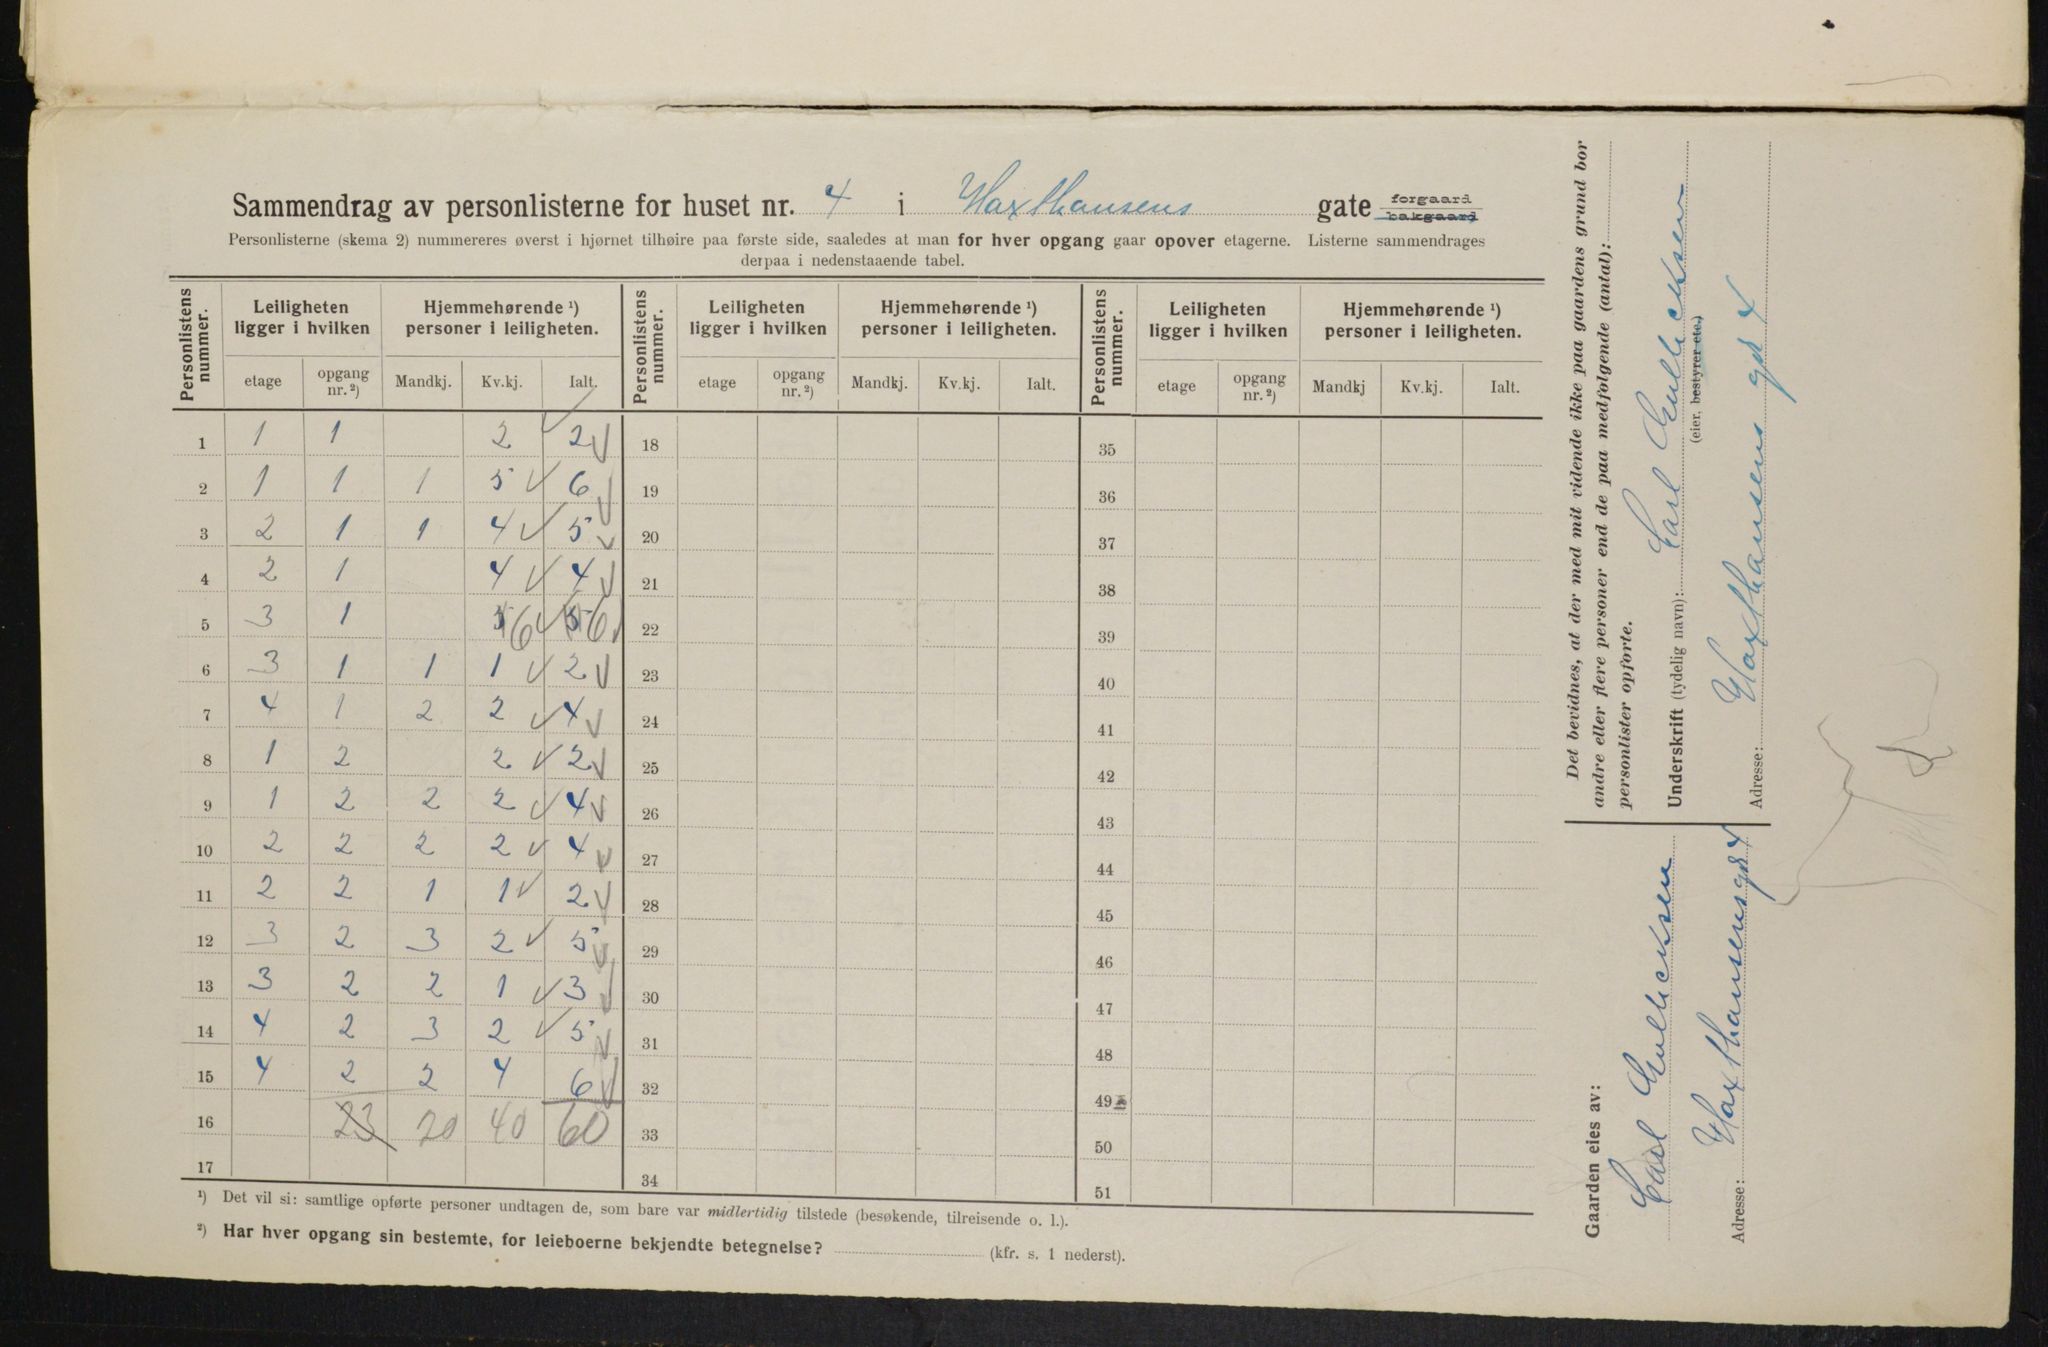 Sammendrag av personlisterne for huset nr. 4 i Haxthausens gate forgaard bakgaard
Personlisterne (skema 2) nummereres øverst i hjørnet tilhøire paa første side, saaledes at man for hver opgang gaar opover etagerne. Listerne sammendrages
derpaa i nedenstaaende tabel.
Personlistens nummer. Leiligheten ligger i hvilken Hjemmehørende ¹) personer i leiligheten. Personlistens nummer. Leiligheten ligger i hvilken Hjemmehørende ¹) personer i leiligheten. Personlistens nummer. Leiligheten ligger i hvilken Hjemmehørende ¹) personer i leiligheten.
etage opgang nr. ²) Mandkj. Kv.kj. Ialt. etage opgang nr. ²) Mandkj. Kv.kj. Ialt. etage opgang nr. ²) Mandkj Kv.kj. Ialt.
1 1 1 2 2 18 35
2 1 1 1 5 6 19 36
3 2 1 1 4 5 20 37
4 2 1 4 4 21 38
5 3 1 5 6 5 6 22 39
6 3 1 1 1 2 23 40
7 4 1 2 2 4 24 41
8 1 2 2 2 25 42
9 1 2 2 2 4 26 43
10 2 2 2 2 4 27 44
11 2 2 1 1 2 28 45
12 3 2 3 2 5 29 46
13 3 2 2 1 3 30 47
14 4 2 3 2 5 31 48
15 4 2 2 4 6 32 49
16 23 20 40 60 33 50
17 34 51
¹) Det vil si: samtlige opførte personer undtagen de, som bare var midlertidig tilstede (besøkende, tilreisende o. l.).
²) Har hver opgang sin bestemte, for leieboerne bekjendte betegnelse? (kfr. s. 1 nederst).
Det bevidnes, at der med mit vidende ikke paa gaardens grund bor
andre eller flere personer end de paa medfølgende (antal):
personlister opførte.
Underskrift (tydelig navn): Carl
(eier, bestyrer etc.)
Adresse: Haxthausens gd 4
Gaarden eies av:
Carl
Adresse: Haxthausensgd 4